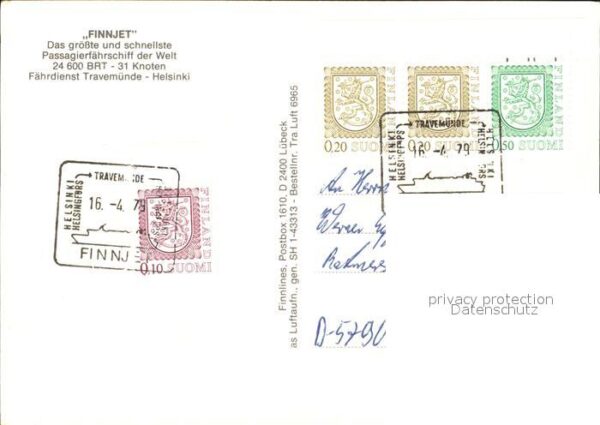 „FINNJET"
Das größte und schnellste
Passagierfährschiff der Welt
24 600 BRT - 31 Knoten
Fährdienst Travemünde - Helsinki
Finnlines, Postbox 1610, D 2400 Lübeck
as Luftaufn., gen. SH 1-43313 - Bestellnr. Tra Luft 6965
FINLAND
0.20
FINLAND
0.20 SUOMI
FINLAND
0.50 SUOMI
TRAVEMÜNDE
HELSINKI
HELSINGFORS
16. -4. 79
TRAVEMÜNDE
HELSINKI
HELSINGFORS
16. -4. 79
FINNJ
FINLAND
0.10 SUOMI
An Herrn
Werner
D-5790
privacy protection
Datenschutz